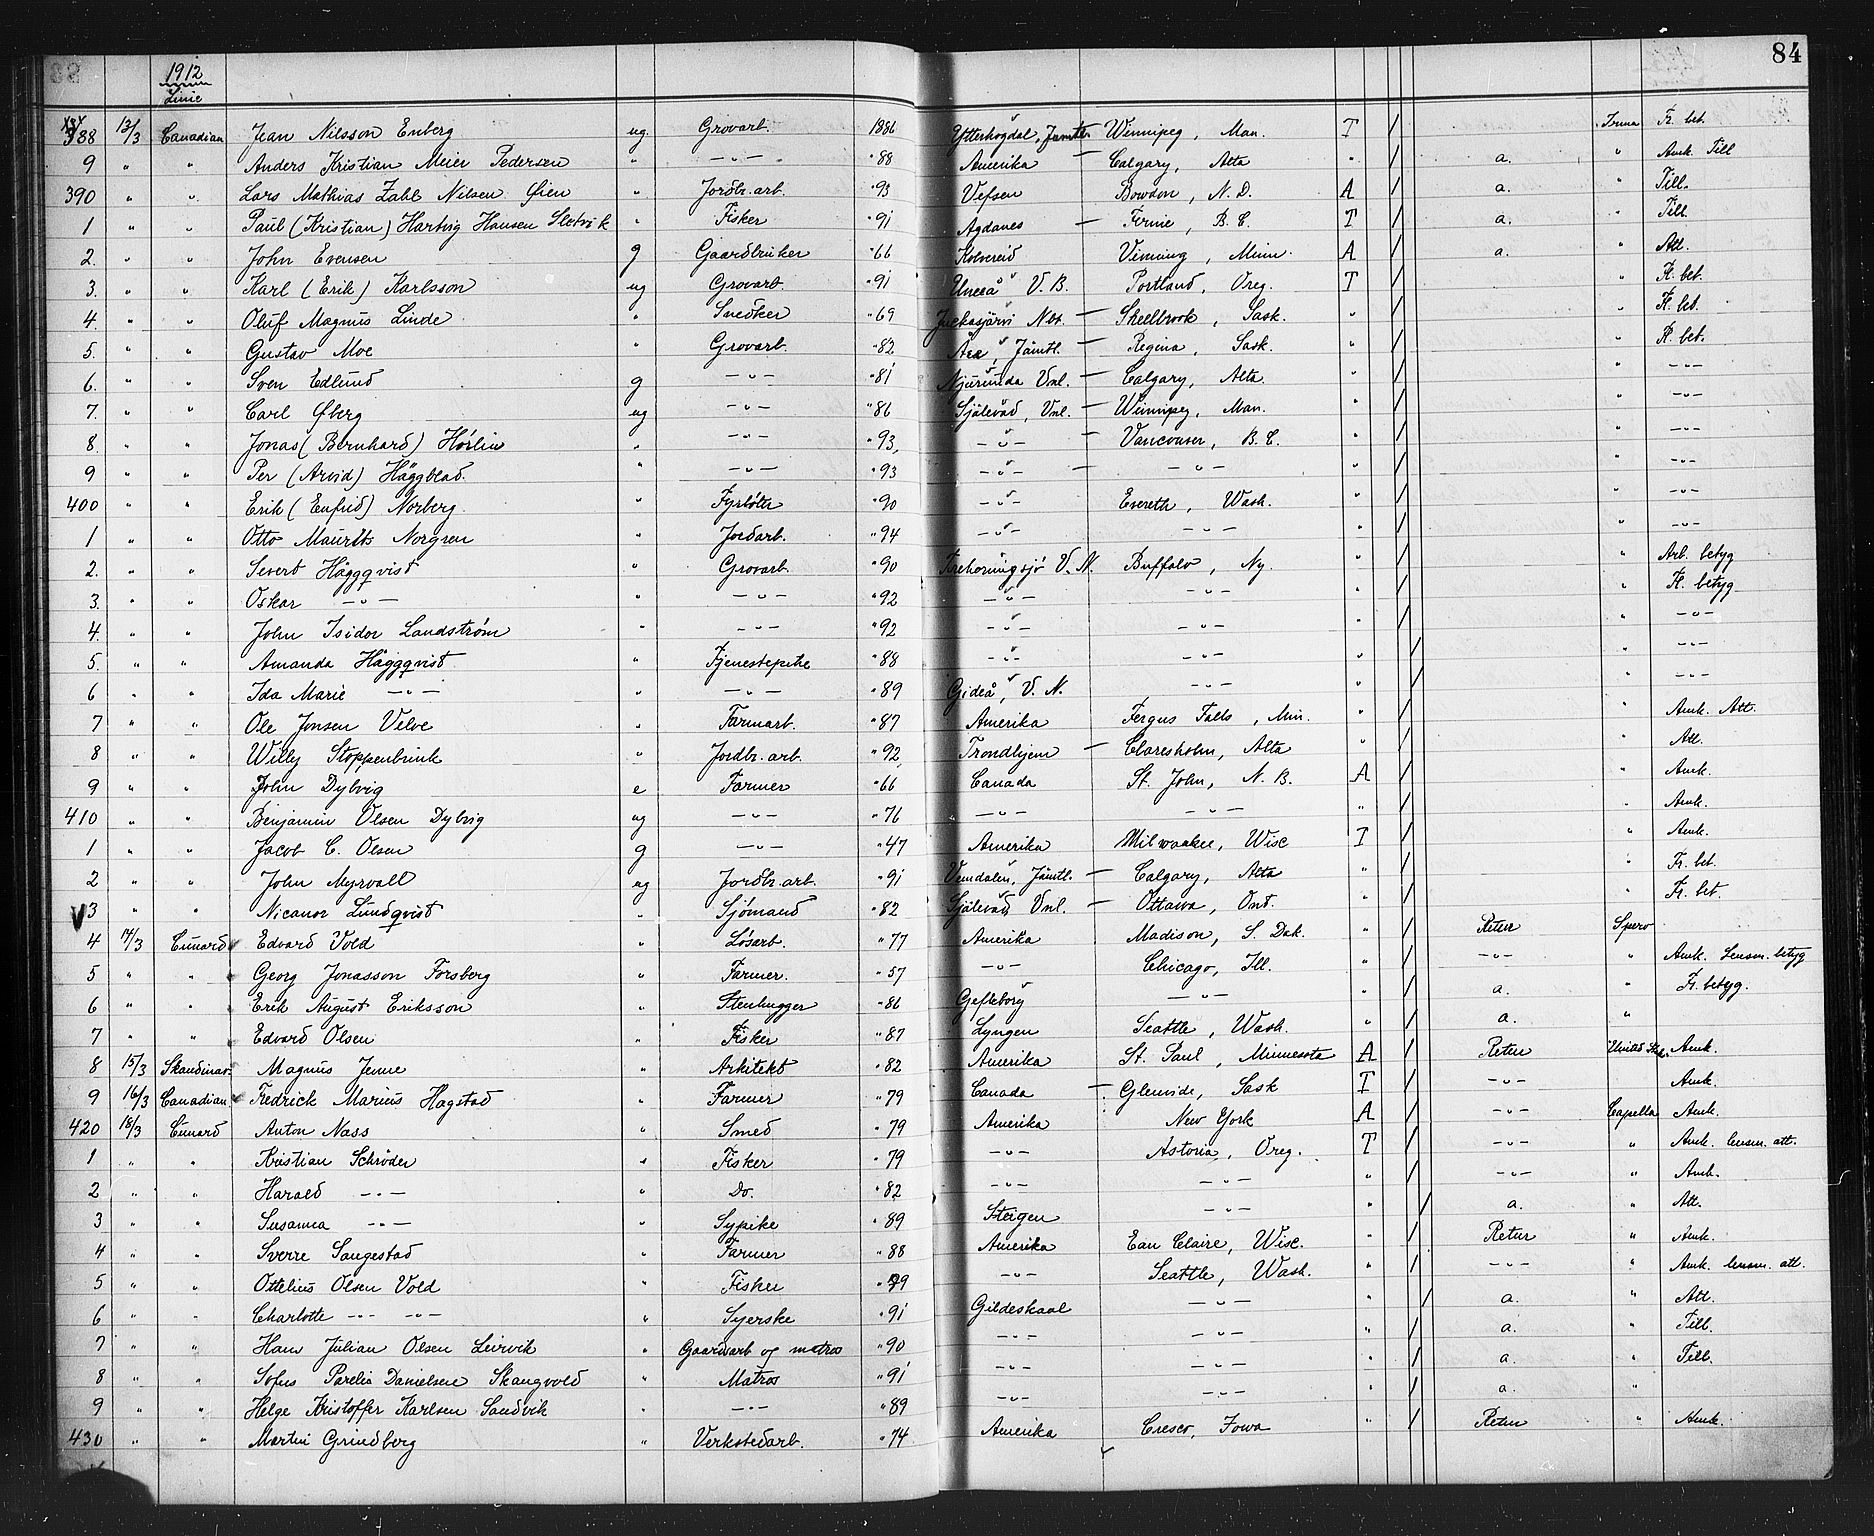 1912 84
Linie
388 13/3 Canadian Jean Nilsson Enberg ug Grovarb. 1886 Ytterhogdal, Jämtl. Winnipeg, Man. T / Irma Fr. bet.
9 " " Anders Kristian Meier Pedersen " -"- " 88 Amerika - Calgary, Alta " / a. " Amk. Till
390 " " Lars Mathias Zahl Nilsen Øien " Jordbr. arb. " 93 Vefsen Bowdon, N. D. A / a. " Till.
1 " " Paul (Kristian) Hartvig Hansen Sletvik " Fisker " 91 Agdanes - Fernie, B. C. T / a. " Till.
2. " " John Evensen g Gaardbruker " 66 Kolvereid Vinning, Minn. A / a. " Att.
3. " " Karl (Erik) Karlsson ug Grovarb. " 91 Umeå V. B. Portland, Oreg. T / " Fr. bet.
4. " " Oluf Magnus Linde " Snedker " 69 Juckasjärvi Nbt. - Shellbrook, Sask. " / " Fr. bet.
5. " " Gustav Moe " Grovarb. " 82 Åre, Jämtl. - Regina, Sask. " / " Fr. bet.
6. " " Sven Edlund g -"- " 81 Njurunda Vnl. - Calgary, Alta. " / " -"-
7. " " Carl Øberg ug -"- " 86 Själevad, Vnl. - Winnipeg, Man. " / " -"-
8. " " Jonas (Bernhard) Hörlin " -"- " 93, -"- - Vancouver, B. C. " / " -"-
9 " " Per (Arvid) Häggblad. " -"- " 93 -"- - -"- " / " -"-
400 " " Erik (Enfrid) Norberg " Fyrbøter " 90 -"- Evereth, Wash. " / " -"-
1 " " Otto Maurits Norgren " Jordarb. " 94 -"- -"- " / " -"-
2. " " Severt Häggqvist " Grovarb. " 90 Trehörningsjö V. N. Buffalo, Ny. " / " Arb. betyg
3. " " Oskar -"- " -"- " 92 -"- -"- " / " Fr. betyg
4. " " John Isidor Landström " -"- " 92 -"- -"- " / " -"-
5. " " Amanda Häggqvist " Tjenestepike " 88 -"- -"- " / " -"-
6 " " Ida Marie -"- " -"- " 89 Gideå, V. N. -"- " / " -"-
7 " " Ole Jonsen Velve " Farmarb. " 87 Amerika Fergus Falls, Min. " / " Amk. Att.
8 " " Willy Stoppenbrink " Jordbr. arb. " 92, Trondhjem - Claresholm, Alta " / " Att.
9 " " John Dybvig e Farmer " 66 Canada St. John, N. B. A / " Amk.
410 " " Benjamin Olsen Dybvig ug -"- " 76 -"- -"- " / " Amk.
1 " " Jacob C. Olsen g -"- " 47 Amerika Milwaukee, Wisc T / " Amk.
2 " " John Myrvall ug Jordbr. arb. " 91 Vemdalen, Jämtl. - Calgary, Alta " / " Fr. bet.
V 3 " " Nicanor Lundqvist " Sjømand " 82 Själevad Vnl. - Ottawa, Ont. " / " Fr. bet
4 14/3 Cunard Edvard Vold " Løsarb. " 77 Amerika Madison, S. Dak. " / Retur Spero
5 " " Georg Jonasson Forsberg " Farmer. " 57 -"- Chicago, Ill. " / -"- " Amk. Lensm. betyg
6 " " Erik August Eriksson " Stenhugger " 86 Gefleborg -"- " / a. " Fr. betyg.
7 " " Edvard Olsen " Fisker " 87 Lyngen Seattle, Wash. " / a. "
8 15/3 Skandinav. Magnus Jenne " Arkitekt " 82 Amerika St. Paul, Minnesota A / Retur United Stat. Amk.
9 16/3 Canadian Fredrick Marius Hagstad " Farmer " 79 Canada - Glenside, Sask T / -"- Amk.
420 18/3 Cunard Anton Nass " Smed " 79 Amerika New York A / -"- Capella Amk.
1 " " Kristian Schrøder " Fisker " 79 -"- Astoria, Oreg. T / -"- " Amk. lensm. att.
2 " " Harald -"- " Do. " 82 -"- -"- " / -"- " Amk.
3 " " Susanna -"- " Sypike " 89 Steigen -"- " / a. " Att.
4 " " Sverre Sangestad " Farmer " 88 Amerika Eau Claire, Wisc. " / Retur " Amk.
5 " " Ottelius Olsen Vold " Fisker " 79 -"- Seattle, Wash. " / -"- " Amk. lensm. att.
6 " " Charlotte -"- -"- " Syerske " 91 Gildeskaal -"- " / a. " Att.
7 " " Hans Julian Olsen Leirvik " Gaardsarb og matros " 90 -"- -"- " / a. " Till.
8 " " Sofus Parelia Danielsen Skaugvold " Matros " 91 -"- -"- " / a. " Till.
9 " " Helge Kristoffer Karlsen Sandvik " -"- " 89 -"- -"- " / a. "
430 " " Martin Grindberg " Verkstedarb. " 74 Amerika Cresco, Iowa " / Retur " Amk.